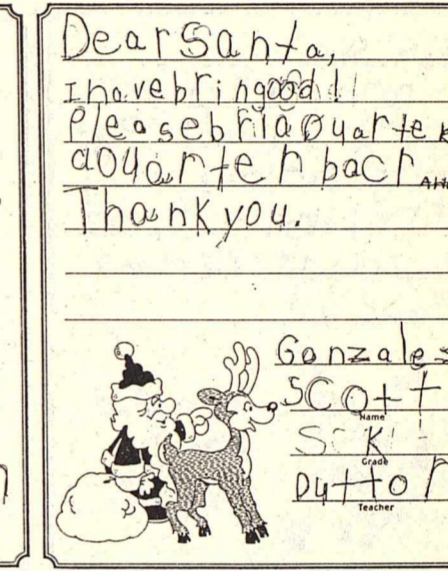 Dear Santa,
I have brin good!!
Please bria Quarter
aQuarter bacr
Thank you.
Gonzales
SCOtt
Name
K
Grade
Dutto
Teacher